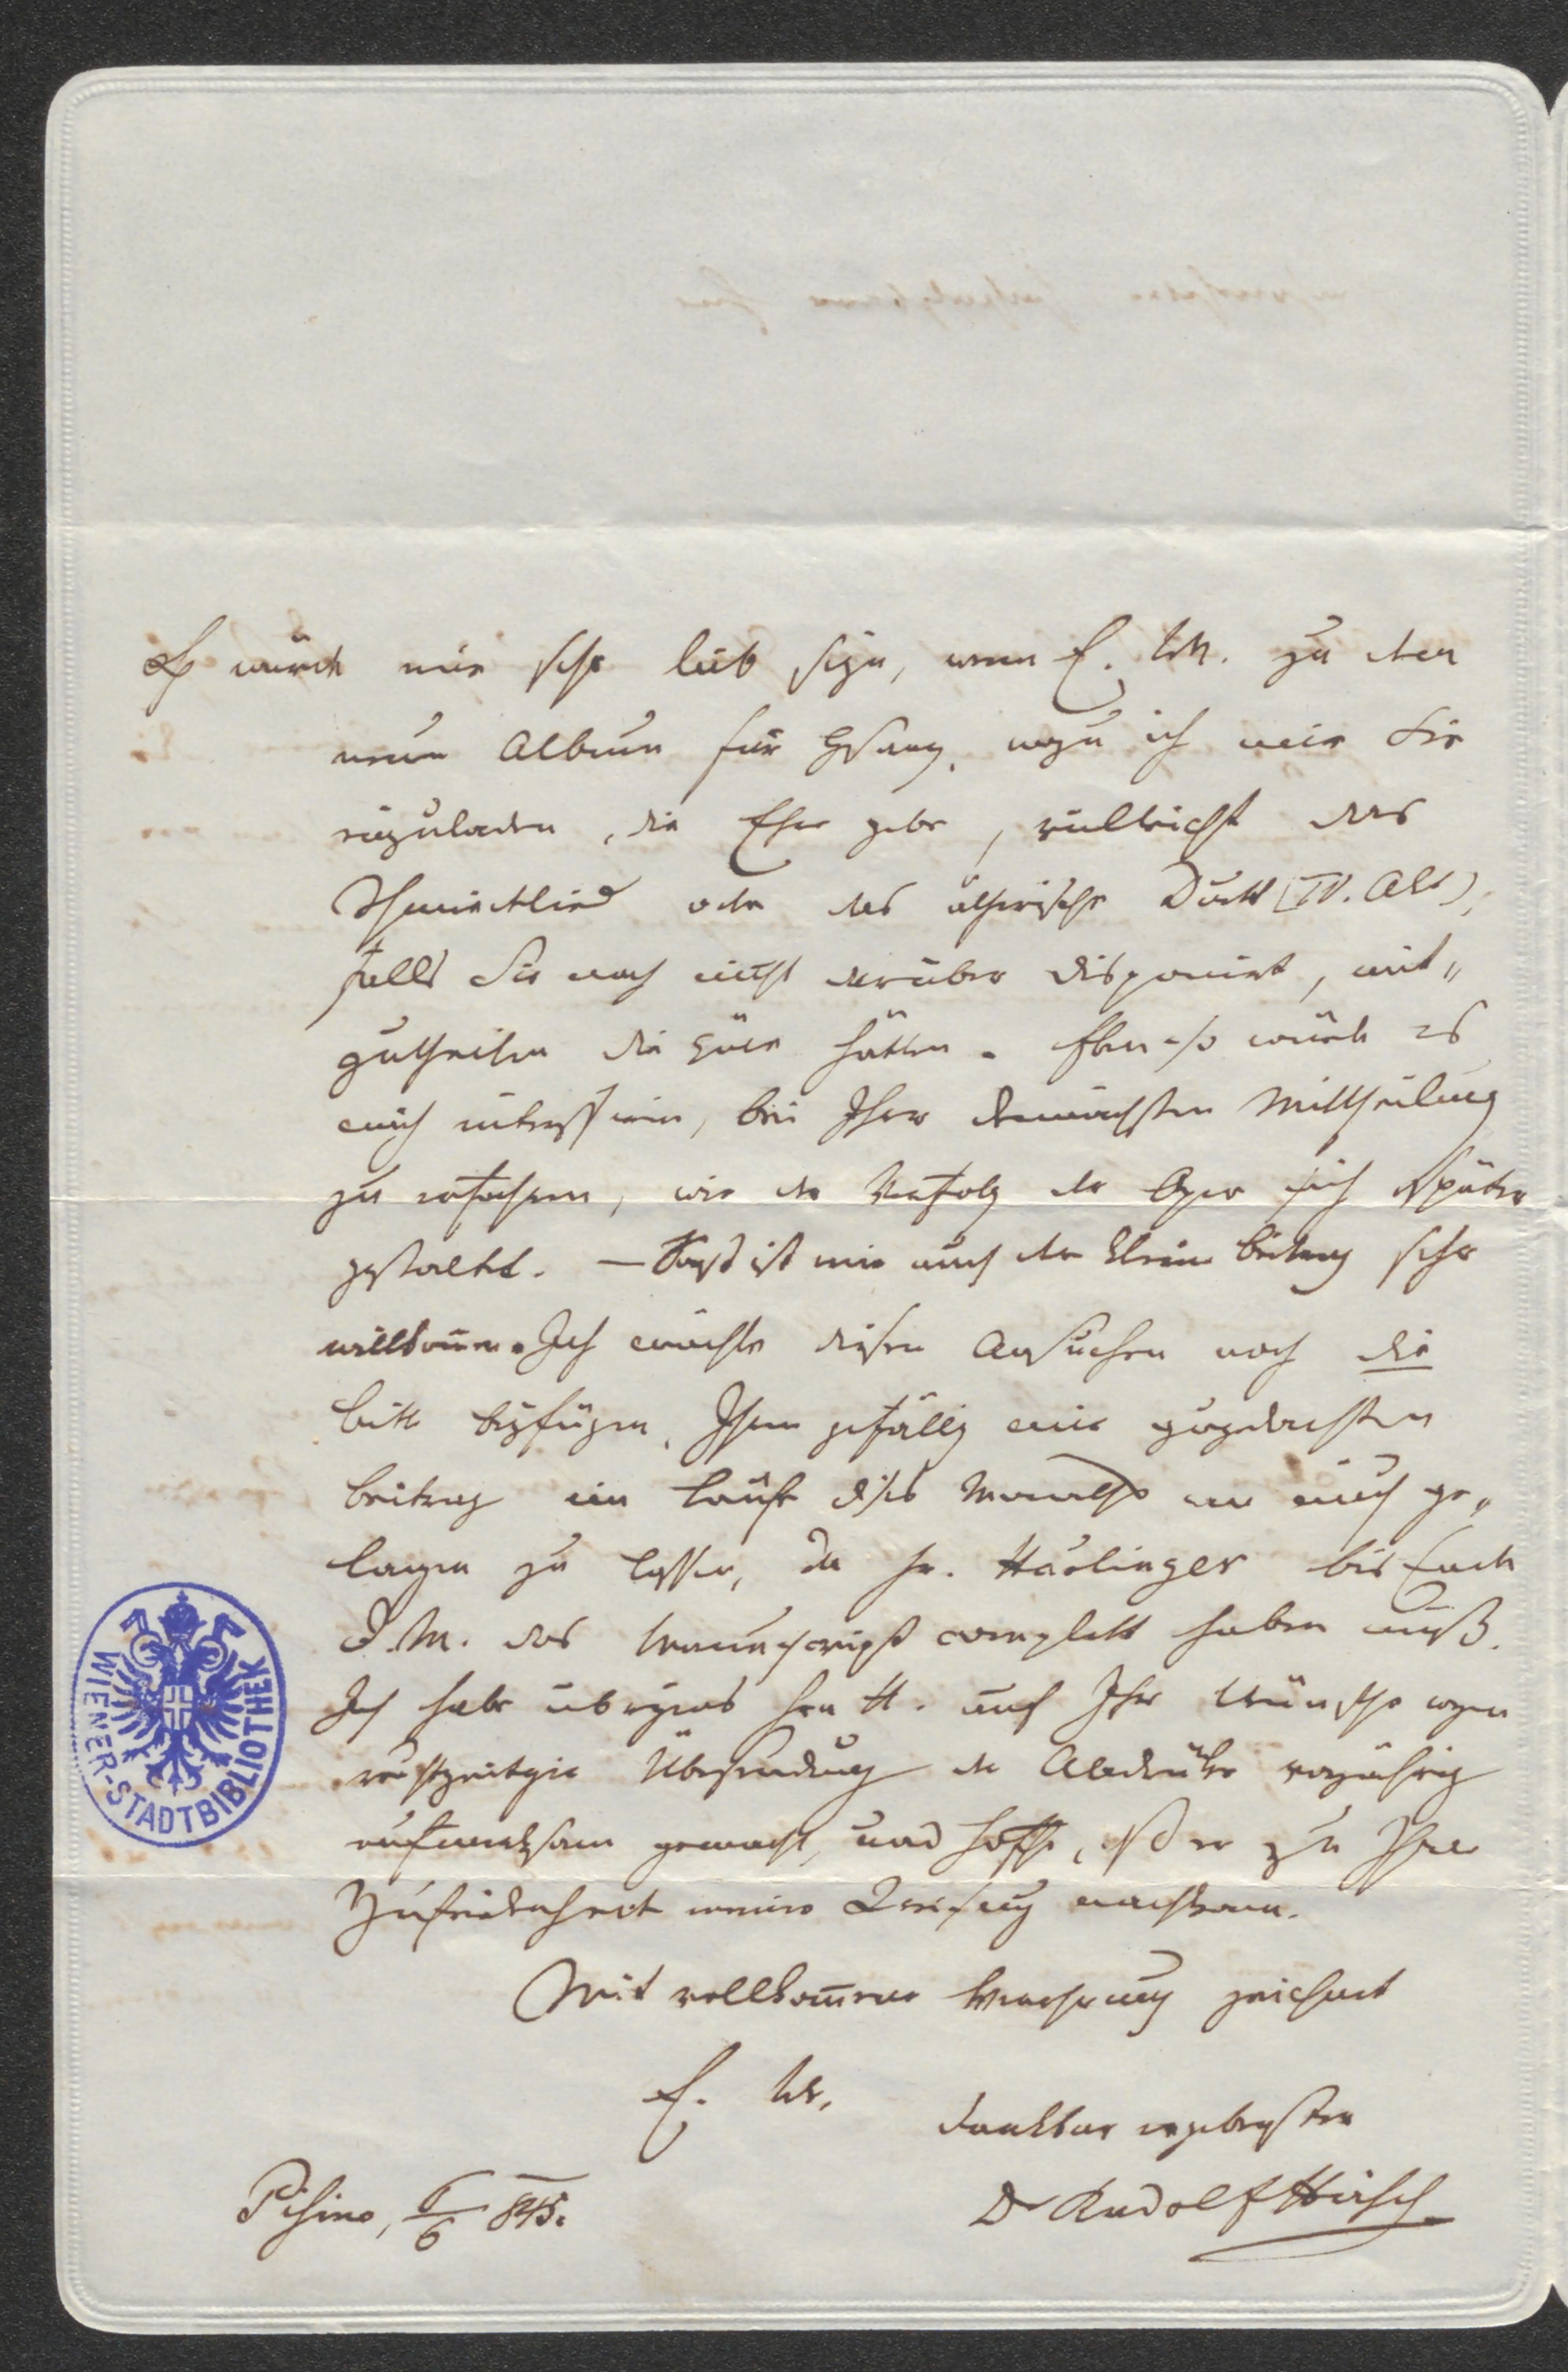 Es würde mir sehr lieb seyn, wenn E. W. zu dem
neuen Album für Gesang, wozu ich mir Sie
einzuladen, die Ehre gebe, vielleicht das
oder das ätherische Duett (IV. Akt),
falls Sie noch nicht darüber disponirt, mit„
zutheilen die Güte hätten. Eben so würde es
mich interessiren, bei Ihrer demnächsten Mittheilung
zu erfahren, wie der Erfolg der Oper sich später
gestaltet. — Sonst ist mir auch der kleine Beitrag sehr
willkom̄en. Ich möchte diesem Ansuchen noch die
Bitte beyfügen, Ihren gefällig mir zugedachten
Beitrag im Laufe dieses Monathes an mich ge„
langen zu lassen, da Hr. Haslinger bis Ende
d. M. das Manuscript complett haben muß.
Ich habe übrigens Hrn H. auf Ihre Wünsche wegen
rechtzeitiger Übersendung der Abdrücke
aufmerksam gemacht, und hoffe, daß er zu Ihrer
Zufriedenheit meiner Weisung nachkam.
Mit vollkom̄ener Verehrung zeichnet
E. W.
dankbar ergebenster
Dr Rudolf Hirsch
Pisino, 6/6 845.
WIENER-STADTBIBLIOTHEK